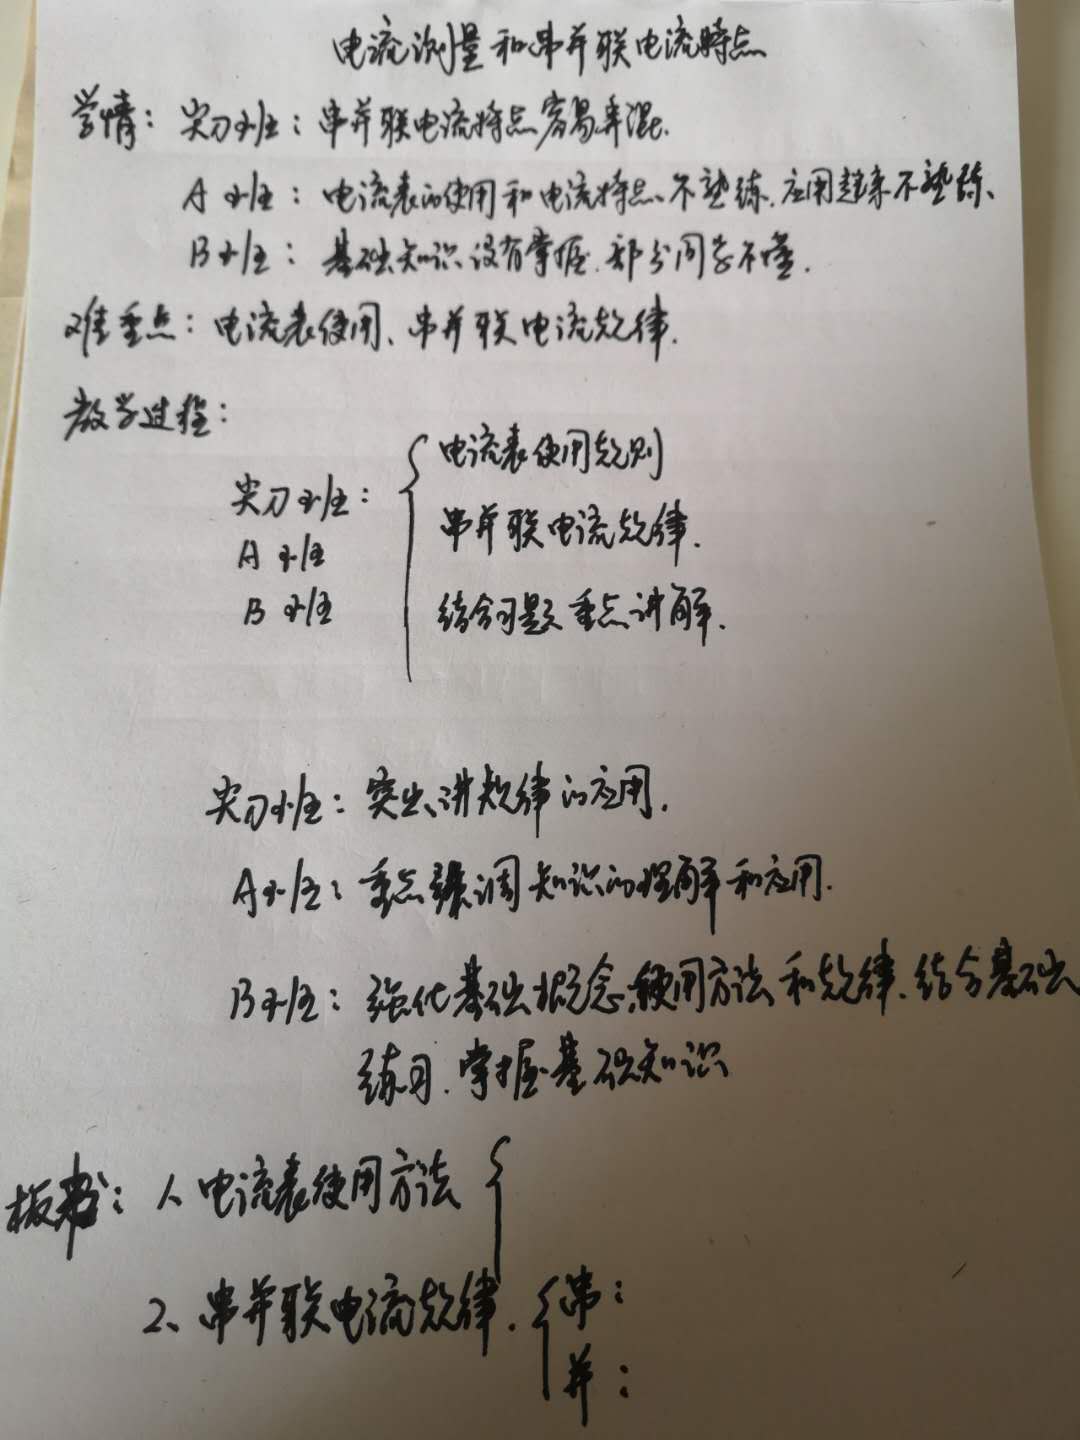 电流测量和串并联电流特点
学情：尖刀班：串并联电流特点容易弄混.
A班：电流表的使用和电流特点不熟练.应用起来不熟练、
B班：基础知识没有掌握.部分同学不懂.
难重点：电流表使用、串并联电流规律.
教学过程：
尖刀班：
A班
B班
电流表使用规则
串并联电流规律.
结合习题重点讲解.
尖刀班：突出讲规律的应用.
A班：重点强调知识的理解和应用.
B班：强化基础概念,使用方法和规律.结合基础
练习.掌握基础知识
板书：1、电流表使用方法
2、串并联电流规律.
串：
并：